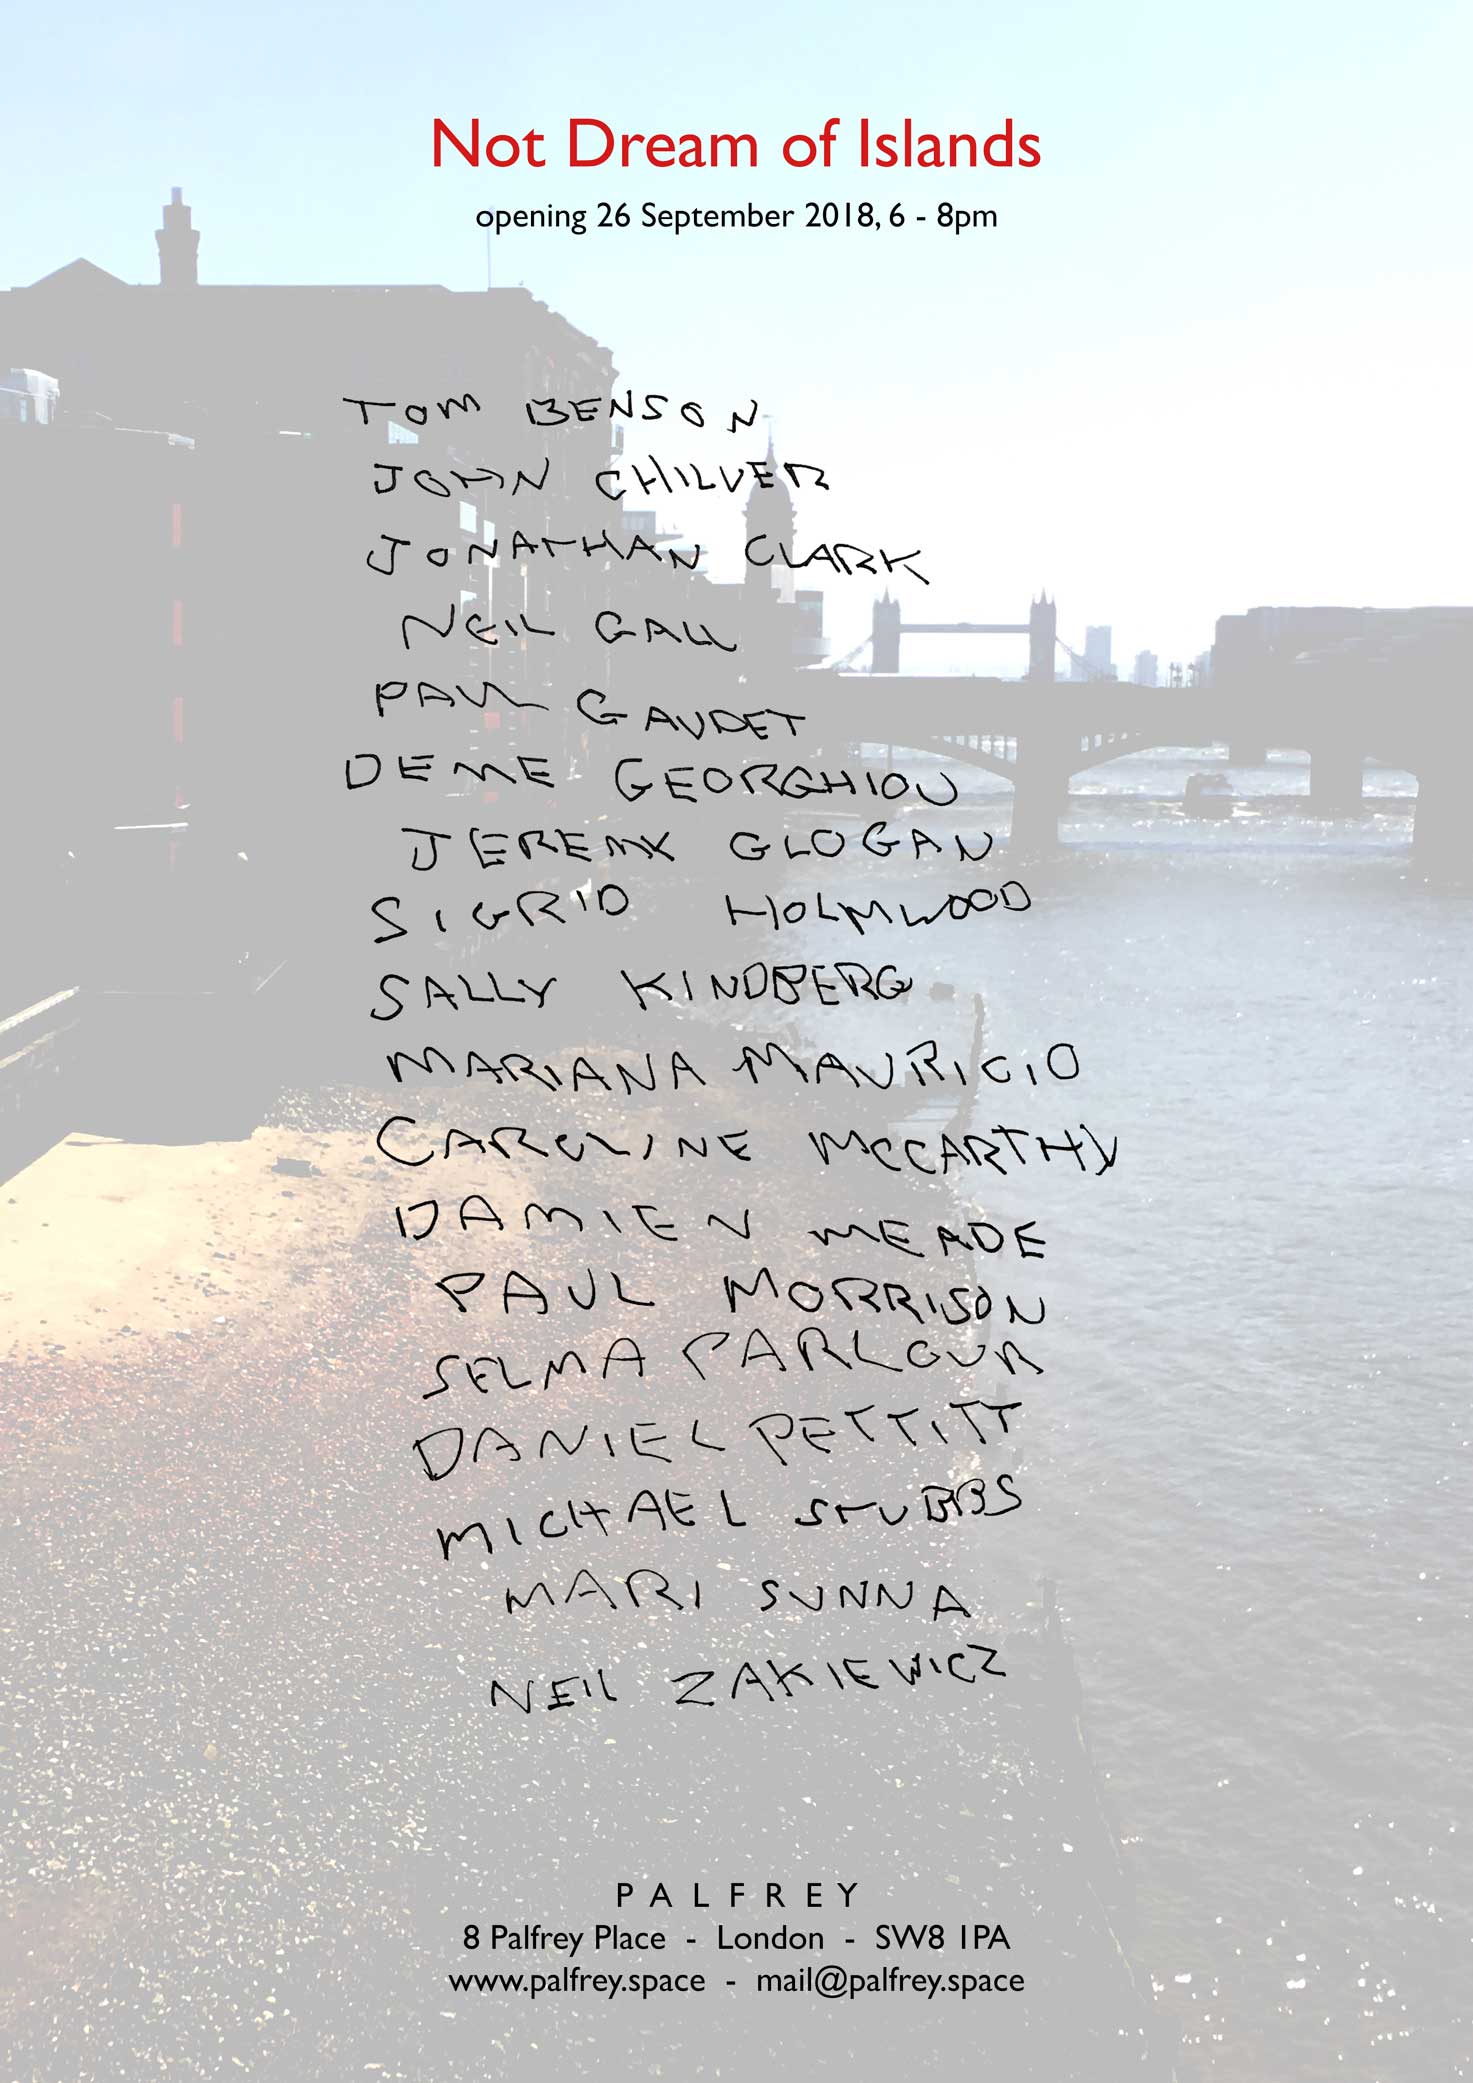 Not Dream of Islands
opening 26 September 2018, 6 - 8pm
TOM BENSON
JOHN CHILVER
JONATHAN CLARK
NEIL GALL
PAUL GAUDET
DEME GEORGHIOU
JEREMY GLOGAN
SIGRID HOLMWOOD
SALLY KINDBERG
MARIANA MAURICIO
CAROLINE MCCARTHY
DAMIEN MEADE
PAUL MORRISON
SELMA PARLOUR
DANIEL PETTITT
MICHAEL STUBBS
MARI SUNNA
NEIL ZAKIEWICZ
PALFREY
8 Palfrey Place - London - SW8 1PA
www.palfrey.space - mail@palfrey.space